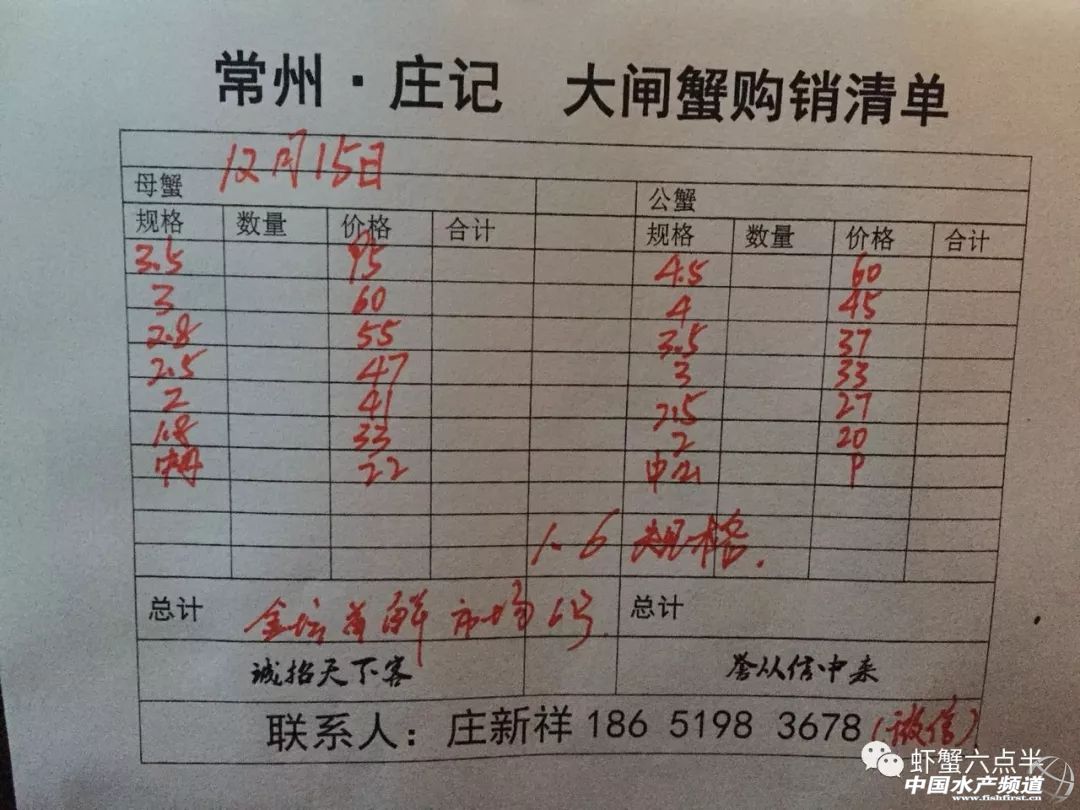 常州·庄记 大闸蟹购销清单
12月15日
母蟹 公蟹
规格 数量 价格 合计 规格 数量 价格 合计
3.5 95 4.5 60
3 60 4 45
2.8 55 3.5 37
2.5 47 3 33
2 41 2.5 27
1.8 33 2 20
22 中公
1.6 规格.
总计 金坛 鲜市场6号 总计
诚招天下客 誉从信中来
联系人：庄新祥 186 5198 3678(微信)
虾蟹六点半
中国水产频道
www.fishfirst.cn